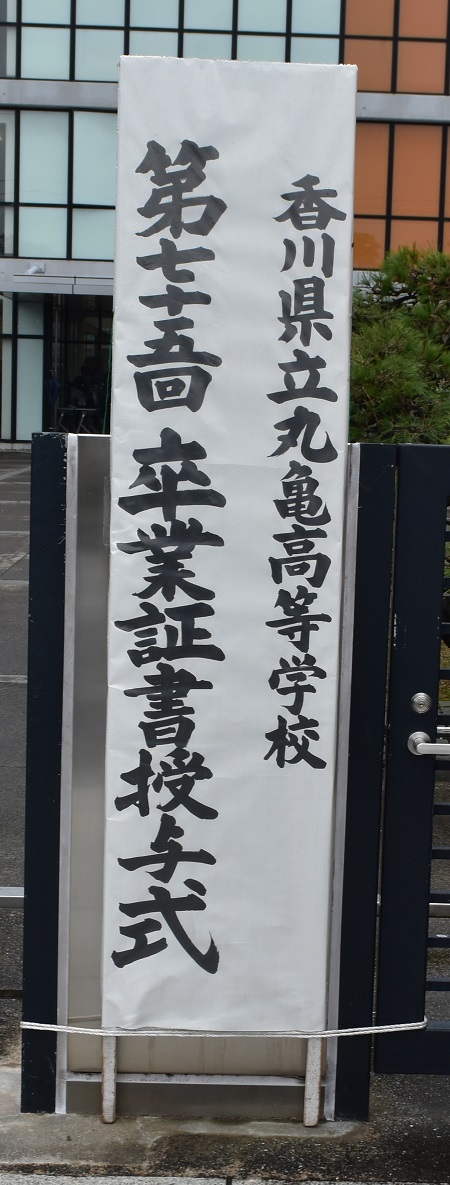 香川県立丸亀高等学校
第七十五回 卒業証書授与式